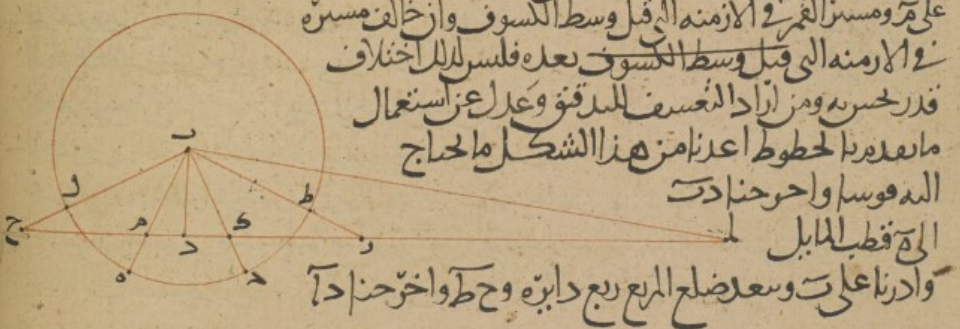 على مَ ومسير القمر في الازمنه التي قبل وسط الكسوف وان خالف مسيره
في الازمنه التي قبل وسط الكسوف بعده فليس لذلك اختلاف
قدر يحس به ومن اراد التعسف للتدقيق وعدل عن استعمال
ما بعده بالخطوط اعدنا من هذا الشكل ما يحتاج
اليه قوسا واخرجنا دب
الى ة قطب المايل
وادرنا على ب وببعد ضلع المربع ربع دايره وح ط واخرجنا دا
ب
ل
ط
ح
م
د
ك
ر
ا
ه
د